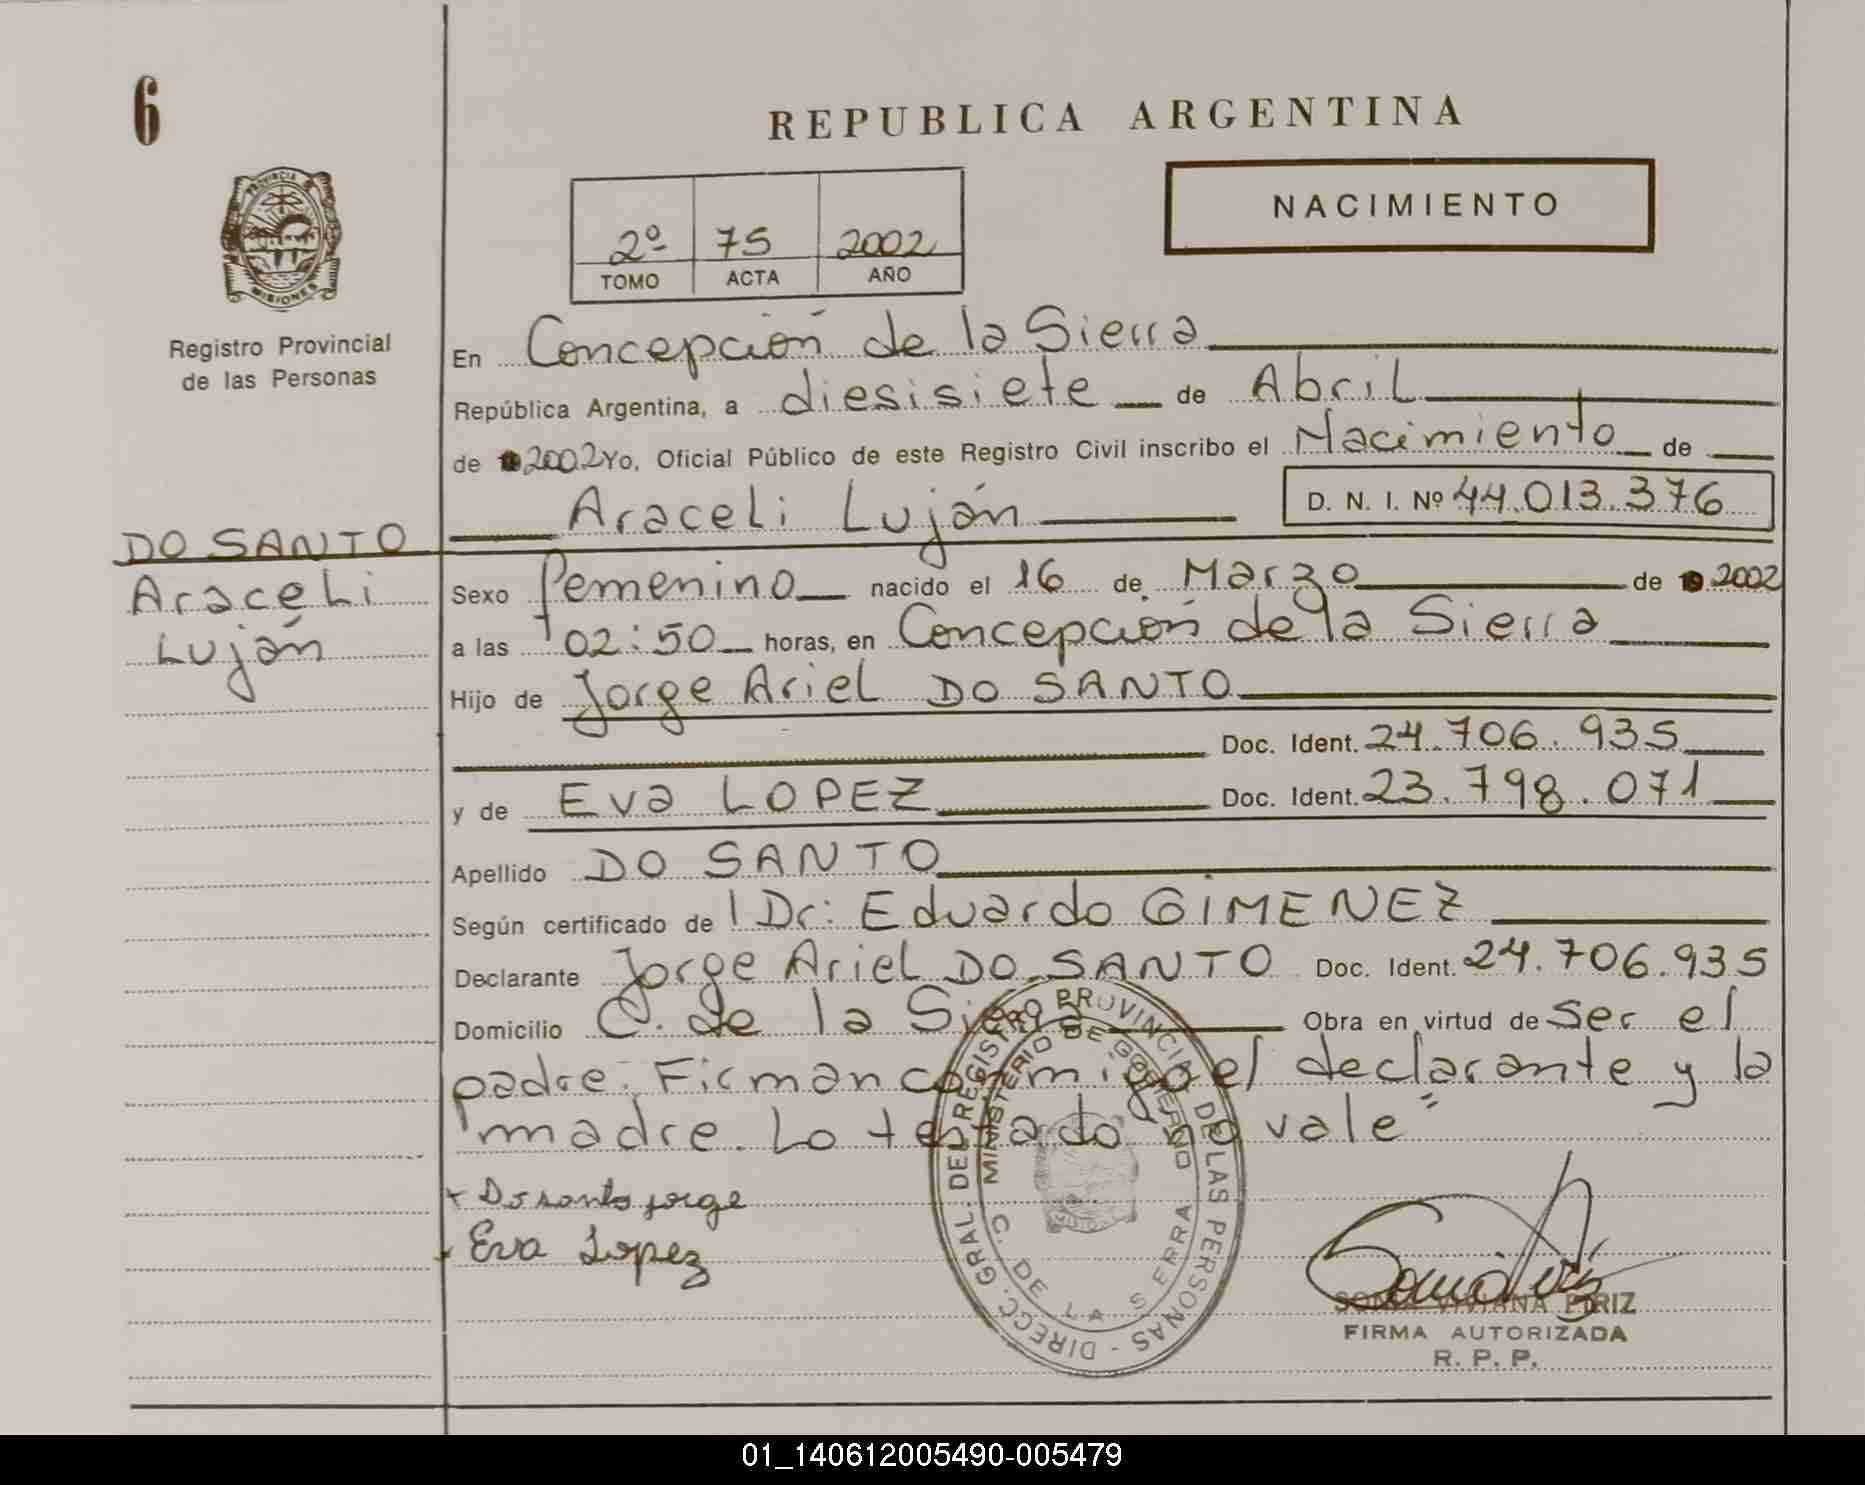 6
REPUBLICA ARGENTINA
PROVINCIA
MISIONES
Registro Provincial
de las Personas
2º 75 2002
TOMO ACTA AÑO
NACIMIENTO
En Concepción de la Sierra
República Argentina, a diesisiete de Abril
de 2002 Yo, Oficial Público de este Registro Civil inscribo el Nacimiento de
Araceli Luján D. N. I. Nº 44.013.376
DO SANTO
Araceli
Luján
Sexo femenino nacido el 16 de Marzo de 2002
a las 02:50 horas, en Concepción de la Sierra
Hijo de Jorge Ariel DO SANTO
Doc. Ident. 24.706.935
y de Eva LOPEZ Doc. Ident. 23.798.071
Apellido DO SANTO
Según certificado de Dr: Eduardo GIMENEZ
Declarante Jorge Ariel DO SANTO Doc. Ident. 24.706.935
Domicilio C. de la Sierra Obra en virtud de ser el
padre. Firman conmigo el declarante y la
madre. Lo testado "no vale"
Do santo jorge
Eva Lopez
DIRECC. GRAL. DEL REGISTRO PROVINCIAL DE LAS PERSONAS -
MINISTERIO DE GOBIERNO
C. DE LA SIERRA
SONIA VIVIANA PIRIZ
FIRMA AUTORIZADA
R. P. P.
01_140612005490-005479